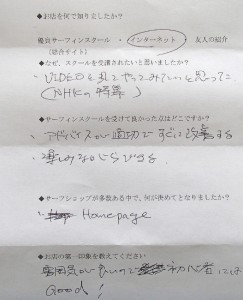 ◆お店を何で知りましたか?
優良サーフィンスクール ・ インターネット ・ 友人の紹介
(総合サイト)
◆なぜ、スクールを受講されたいと思いましたか?
・VIDEOを見てやってみたいと思った
(NHKの特集)
◆サーフィンスクールを受けて良かった点はどこですか?
・アドバイスが適切ですぐに改善する
・楽しみながらできる
◆サーフショップが多数ある中で、何が決めてとなりましたか?
・Homepage
◆お店の第一印象を教えてください
雰囲気が良いので初心者には
Good!